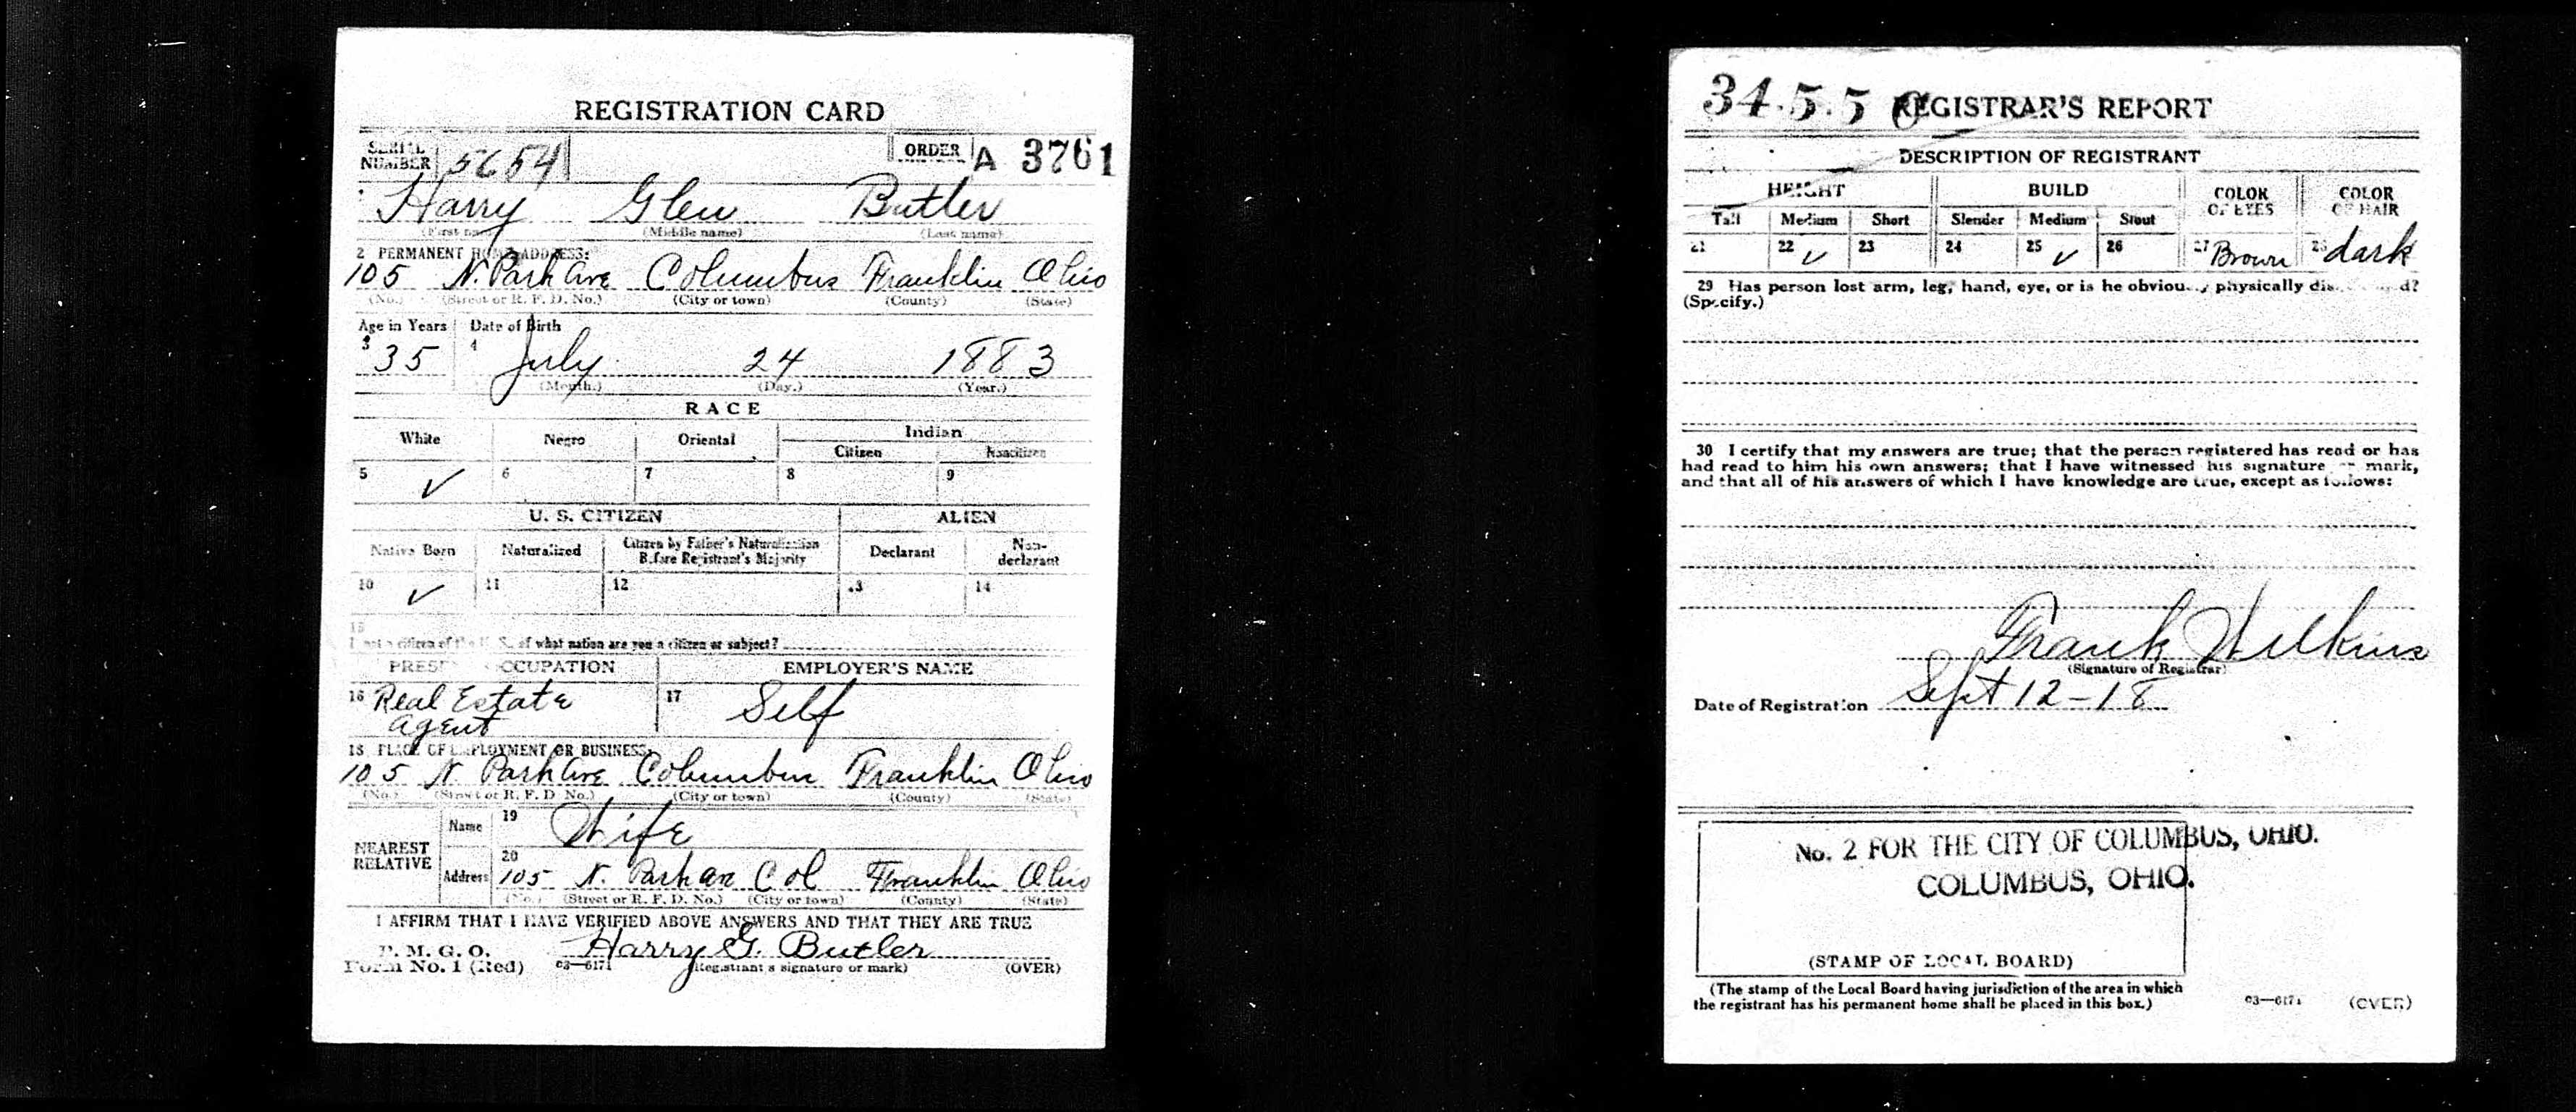 REGISTRATION CARD
SERIAL NUMBER 5654 ORDER A 3761
1 Harry Glen Butler
(First name) (Middle name) (Last name)
2 PERMANENT HOME ADDRESS:
105 N. Park Ave Columbus Franklin Ohio
(No.) (Street or R. F. D. No.) (City or town) (County) (State)
Age in Years Date of Birth
3 35 4 July 24 1883
(Month.) (Day.) (Year.)
RACE
White Negro Oriental Indian
Citizen Noncitizen
5 ✓ 6 7 8 9
U. S. CITIZEN ALIEN
Native Born Naturalized Citizen by Father's Naturalization Before Registrant's Majority Declarant Non-declarant
10 ✓ 11 12 13 14
15
If not a citizen of the U. S., of what nation are you a citizen or subject?
PRESENT OCCUPATION EMPLOYER'S NAME
16 Real Estate agent 17 Self
18 PLACE OF EMPLOYMENT OR BUSINESS:
105 N. Park Ave Columbus Franklin Ohio
(No.) (Street or R. F. D. No.) (City or town) (County) (State)
NEAREST RELATIVE Name 19 Wife
Address 20 105 N. Park av Col Franklin Ohio
(No.) (Street or R. F. D. No.) (City or town) (County) (State)
I AFFIRM THAT I HAVE VERIFIED ABOVE ANSWERS AND THAT THEY ARE TRUE
P. M. G. O. Harry G. Butler
Form No. 1 (Red) 03—6171 (Registrant's signature or mark) (OVER)
34.5.5 REGISTRAR'S REPORT
DESCRIPTION OF REGISTRANT
HEIGHT BUILD COLOR OF EYES COLOR OF HAIR
Tall Medium Short Slender Medium Stout
21 22 ✓ 23 24 25 ✓ 26 27 Brown 28 dark
29 Has person lost arm, leg, hand, eye, or is he obviously physically disqualified?
(Specify.)
30 I certify that my answers are true; that the person registered has read or has
had read to him his own answers; that I have witnessed his signature or mark,
and that all of his answers of which I have knowledge are true, except as follows:
Frank Wilkins
(Signature of Registrar)
Date of Registration Sept 12-18
No. 2 FOR THE CITY OF COLUMBUS, OHIO.
COLUMBUS, OHIO.
(STAMP OF LOCAL BOARD)
(The stamp of the Local Board having jurisdiction of the area in which
the registrant has his permanent home shall be placed in this box.) 03—6171 (OVER)